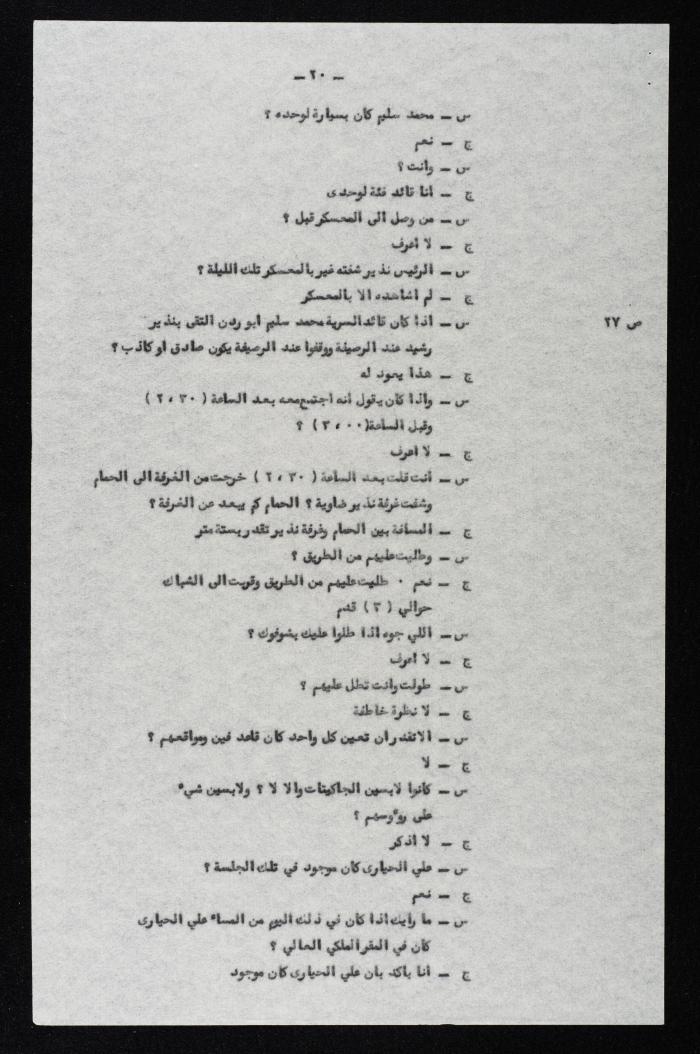 – ٢٠ –
س – محمد سليم كان بسيارة لوحده ؟
ج – نعم
س – وانت ؟
ج – انا قائد فئة لوحدى
س – من وصل الى المعسكر قبل ؟
ج – لا اعرف
س – الرئيس نذير شفته غير بالمعسكر تلك الليلة ؟
ج – لم اشاهده الا بالمعسكر
ص ٢٧
س – اذا كان قائد السرية محمد سليم ابو ردن التقى بنذير
رشيد عند الرصيفة ووقفوا عند الرصيفة يكون صادق او كاذب ؟
ج – هذا يعود له
س – واذا كان يقول أنه اجتمع معه بعد الساعة ( ٢،٣٠ )
وقبل الساعة (٣،٠٠ ) ؟
ج – لا اعرف
س – أنت قلت بعد الساعة ( ٢،٣٠ ) خرجت من الغرفة الى الحمام
وشفت غرفة نذير ضاوية ؟ الحمام كم يبعد عن الغرفة ؟
ج – المسافة بين الحمام وغرفة نذير تقدر بستة متر
س – وطليت عليهم من الطريق ؟
ج – نعم . طليت عليهم من الطريق وقربت الى الشباك
حوالي ( ٣ ) قدم
س – اللي جوه اذا طلوا عليك بشوفوك ؟
ج – لا اعرف
س – طولت وانت تطل عليهم ؟
ج – لا نظرة خاطفة
س – الا تقدر ان تعين كل واحد كان قاعد فين ومواقعهم ؟
ج – لا
س – كانوا لابسين الجاكيتات والا لا ؟ ولابسين شيء
على روءوسهم ؟
ج – لا اذكر
س – علي الحيارى كان موجود في تلك الجلسة ؟
ج – نعم
س – ما رايك اذا كان في ذلك اليوم من المساء علي الحيارى
كان في المقر الملكي العالي ؟
ج – أنا باكد بان علي الحيارى كان موجود